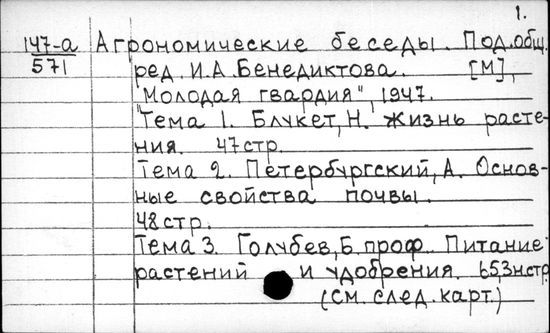 1.
147-а Агрономические беседы. Под.общ.
571 ред. И.А.Бенедиктова. [М],
"Молодая гвардия", 1947.
Тема 1. Блукет, Н. Жизнь расте-
ния. 47стр.
Тема 2. Петербургский, А. Основ-
ные свойства почвы.
48стр.
Тема 3. Голубев, Б. проф. Питание
растений и удобрения.
(см. след. карт.)